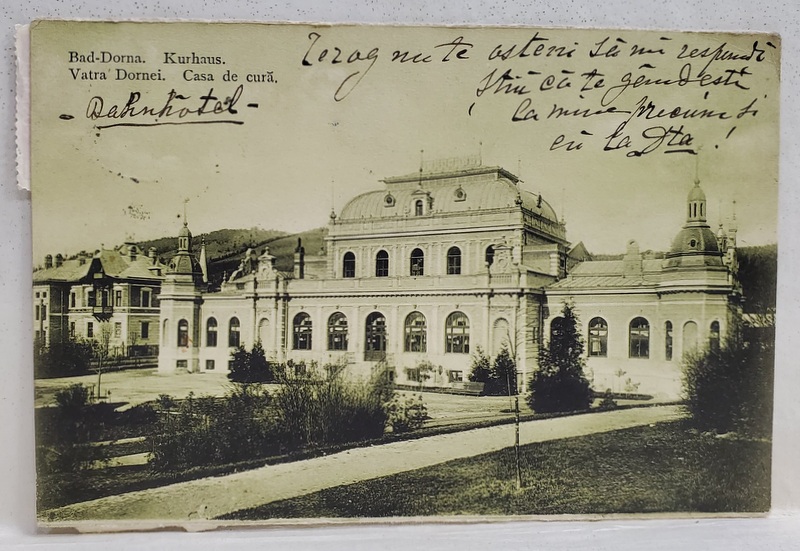 Bad-Dorna. Kurhaus.
Vatra Dornei. Casa de cură.
- Bahnhotel -
Te rog nu te osteni să mi respundi
Știu că te gândești
la mine precum și
eu la Dta!